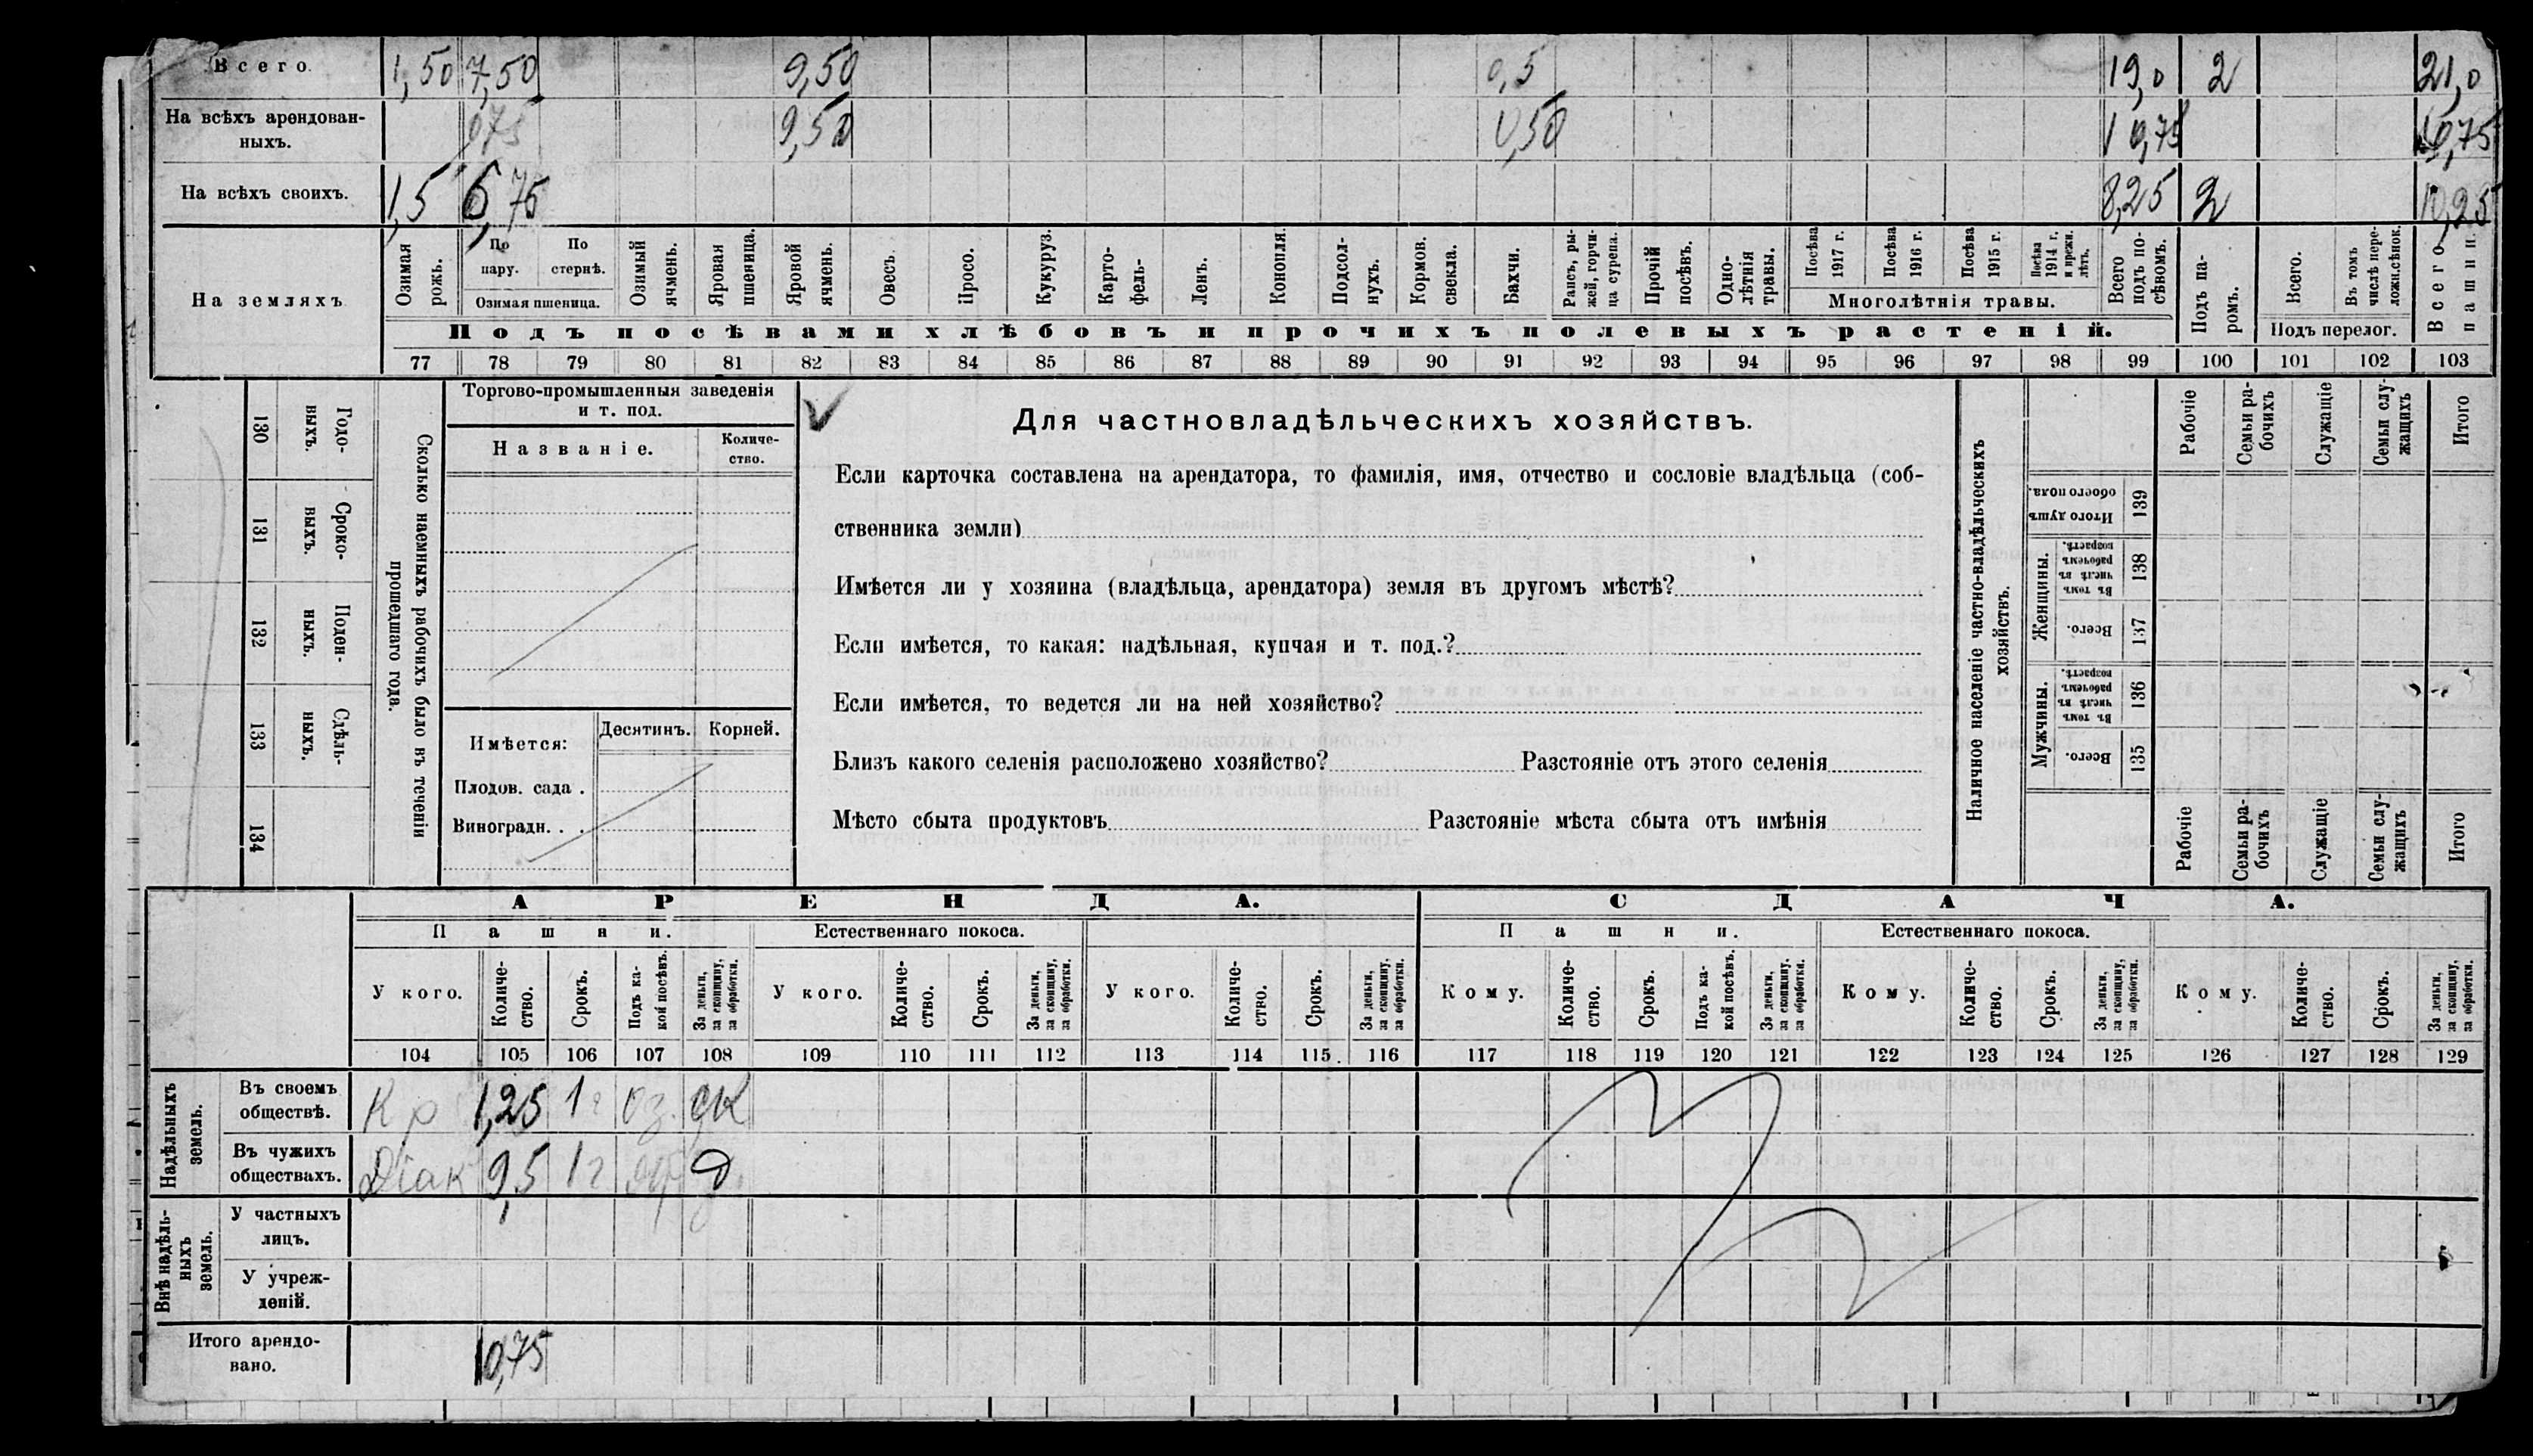 Всего. 1,50 7,50 9,50 0,5 19,0 2 21,0
На всѣхъ арендован-
ныхъ. 0,75 9,50 0,50 10,75 10,75
На всѣхъ своихъ. 1,5 6,75 8,25 2 10,25
На земляхъ
Озимая рожь.
По пару.
По стернѣ.
Озимая пшеница.
Озимый ячмень.
Яровая пшеница.
Яровой ячмень.
Овесъ.
Просо.
Кукуруз.
Карто-
фель-
Ленъ.
Конопля.
Подсол-
нухъ.
Кормов. свекла.
Бахчи.
Рапсъ, ры-
жей, горчи-
ца сурепа.
Прочій посѣвъ.
Одно-
лѣтнія травы.
Посѣва 1917 г.
Посѣва 1916 г.
Посѣва 1915 г.
Посѣва 1914 г. и прежн. лѣтъ.
Многолѣтнія травы.
Всего подъ по-
сѣвомъ.
Подъ па-
ромъ.
Всего.
Въ томъ числѣ пере-
лож.сѣнок.
Подъ перелог.
Всего пашни.
Подъ посѣвами хлѣбовъ и прочихъ полевыхъ растеній.
77 78 79 80 81 82 83 84 85 86 87 88 89 90 91 92 93 94 95 96 97 98 99 100 101 102 103
Сколько наемныхъ рабочихъ было въ теченіи
прошедшаго года.
Годо-
выхъ.
130
Сроко-
ныхъ.
131
Поден-
ныхъ.
132
Сдѣль-
ныхъ.
133
134
Торгово-промышленныя заведенія
и т. под.
Названіе.
Количе-
ство.
Имѣется: Десятинъ. Корней.
Плодов. сада .
Виноградн. . .
Для частновладѣльческихъ хозяйствъ.
Если карточка составлена на арендатора, то фамилія, имя, отчество и сословіе владѣльца (соб-
ственника земли)
Имѣется ли у хозяина (владѣльца, арендатора) земля въ другомъ мѣстѣ?
Если имѣется, то какая: надѣльная, купчая и т. под.?
Если имѣется, то ведется ли на ней хозяйство?
Близъ какого селенія расположено хозяйство? Разстояніе отъ этого селенія
Мѣсто сбыта продуктовъ Разстояніе мѣста сбыта отъ имѣнія
Наличное населеніе частно-владѣльческихъ
хозяйствъ.
Рабочіе
Семьи ра-
бочихъ
Служащіе
Семьи слу-
жащихъ
Итого
Итого душъ обоего пола. 139
Женщины.
Въ томъ числѣ въ рабочемъ возрастѣ. 138
Всего. 137
Мужчины.
Въ томъ числѣ въ рабочемъ возрастѣ. 136
Всего. 135
Рабочіе
Семьи ра-
бочихъ
Служащіе
Семьи слу-
жащихъ
Итого
АРЕНДА. СДАЧА.
Пашни. Естественнаго покоса. Пашни. Естественнаго покоса.
У кого.
Количе-
ство.
Срокъ.
Подъ ка-
кой посѣвъ.
За деньги,
за скопщину,
за обработки.
У кого.
Количе-
ство.
Срокъ.
За деньги,
за скопщину,
за обработки.
У кого.
Количе-
ство.
Срокъ.
За деньги,
за скопщину,
за обработки.
Кому.
Количе-
ство.
Срокъ.
Подъ ка-
кой посѣвъ.
За деньги,
за скопщину,
за обработки.
Кому.
Количе-
ство.
Срокъ.
За деньги,
за скопщину,
за обработки.
Кому.
Количе-
ство.
Срокъ.
За деньги,
за скопщину,
за обработки.
104 105 106 107 108 109 110 111 112 113 114 115 116 117 118 119 120 121 122 123 124 125 126 127 128 129
Надѣльныхъ
земель.
Въ своемъ
обществѣ. Кр 1,25 1 г оз. ск
Въ чужихъ
обществахъ. Діак 9,5 1 г д
Внѣ надѣль-
ныхъ
земель.
У частныхъ
лицъ.
У учреж-
деній.
Итого арендо-
вано. 10,75